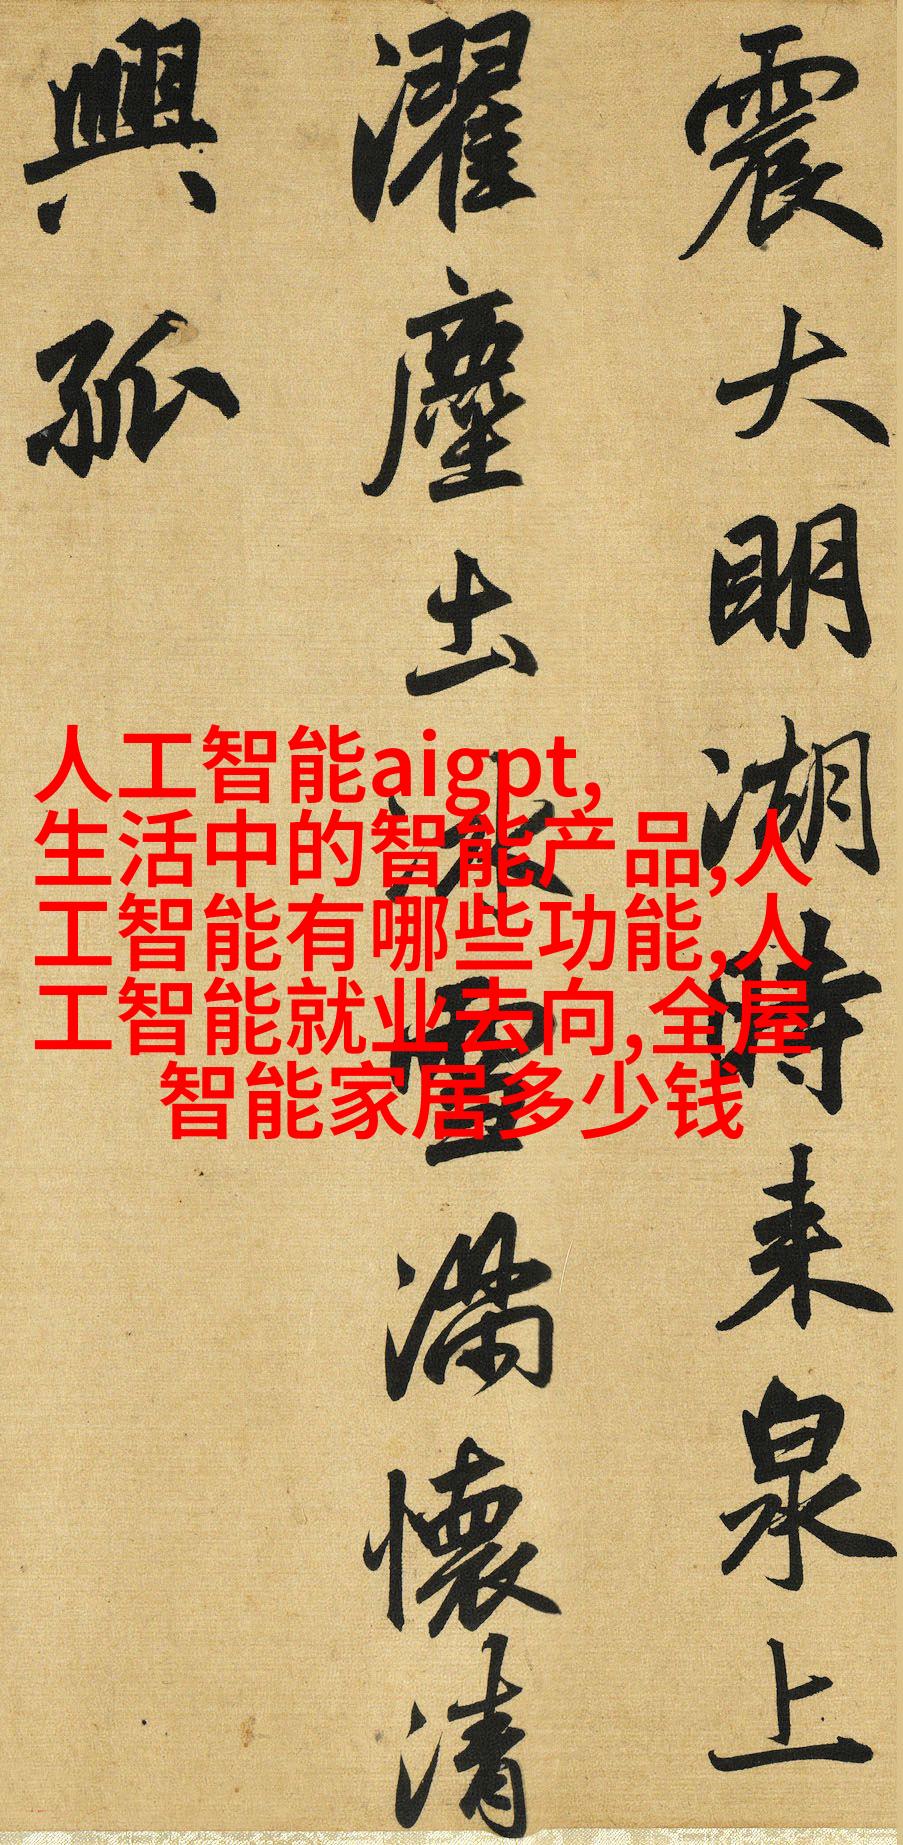 震大明湖時来泉上
濯塵土冰雪满懷清
興孤
人工智能aigpt,
生活中的智能产品,人
工智能有哪些功能,人
工智能就业去向,全屋
智能家居多少钱